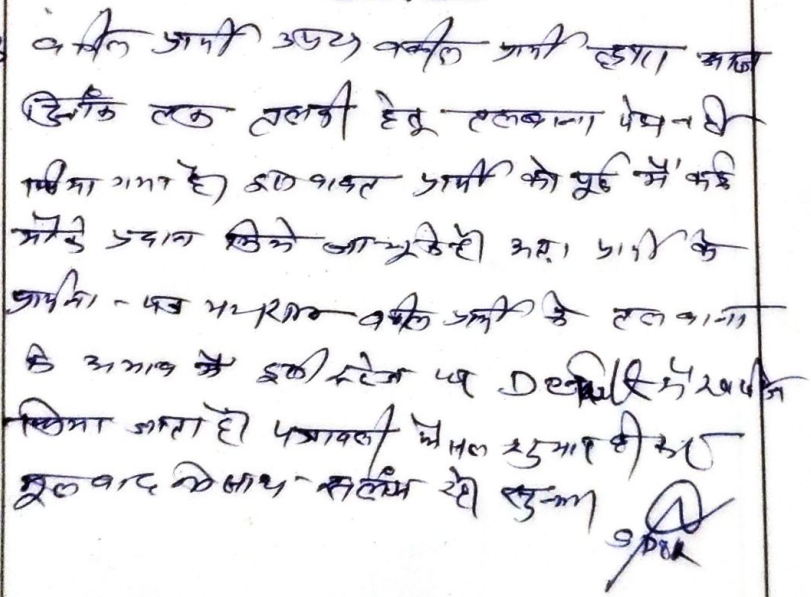 वकील प्रार्थी उप० वकील प्रार्थी द्वारा आज
दिनांक तक तलबी हेतु तलबाना पेश नही
किया गया है। इस बाबत प्रार्थी को पूर्व में कई
मौके प्रदान किये जा चूके है। अतः प्रार्थी के
प्रार्थना-पत्र वकील प्रार्थी के तलबाना
के अभाव में इसी स्टेज पर Default में खारिज
किया जाता है। पत्रावली फैसल शुमार होकर
मूलवाद के साथ संलग्न रहे। सुनाया
SDM